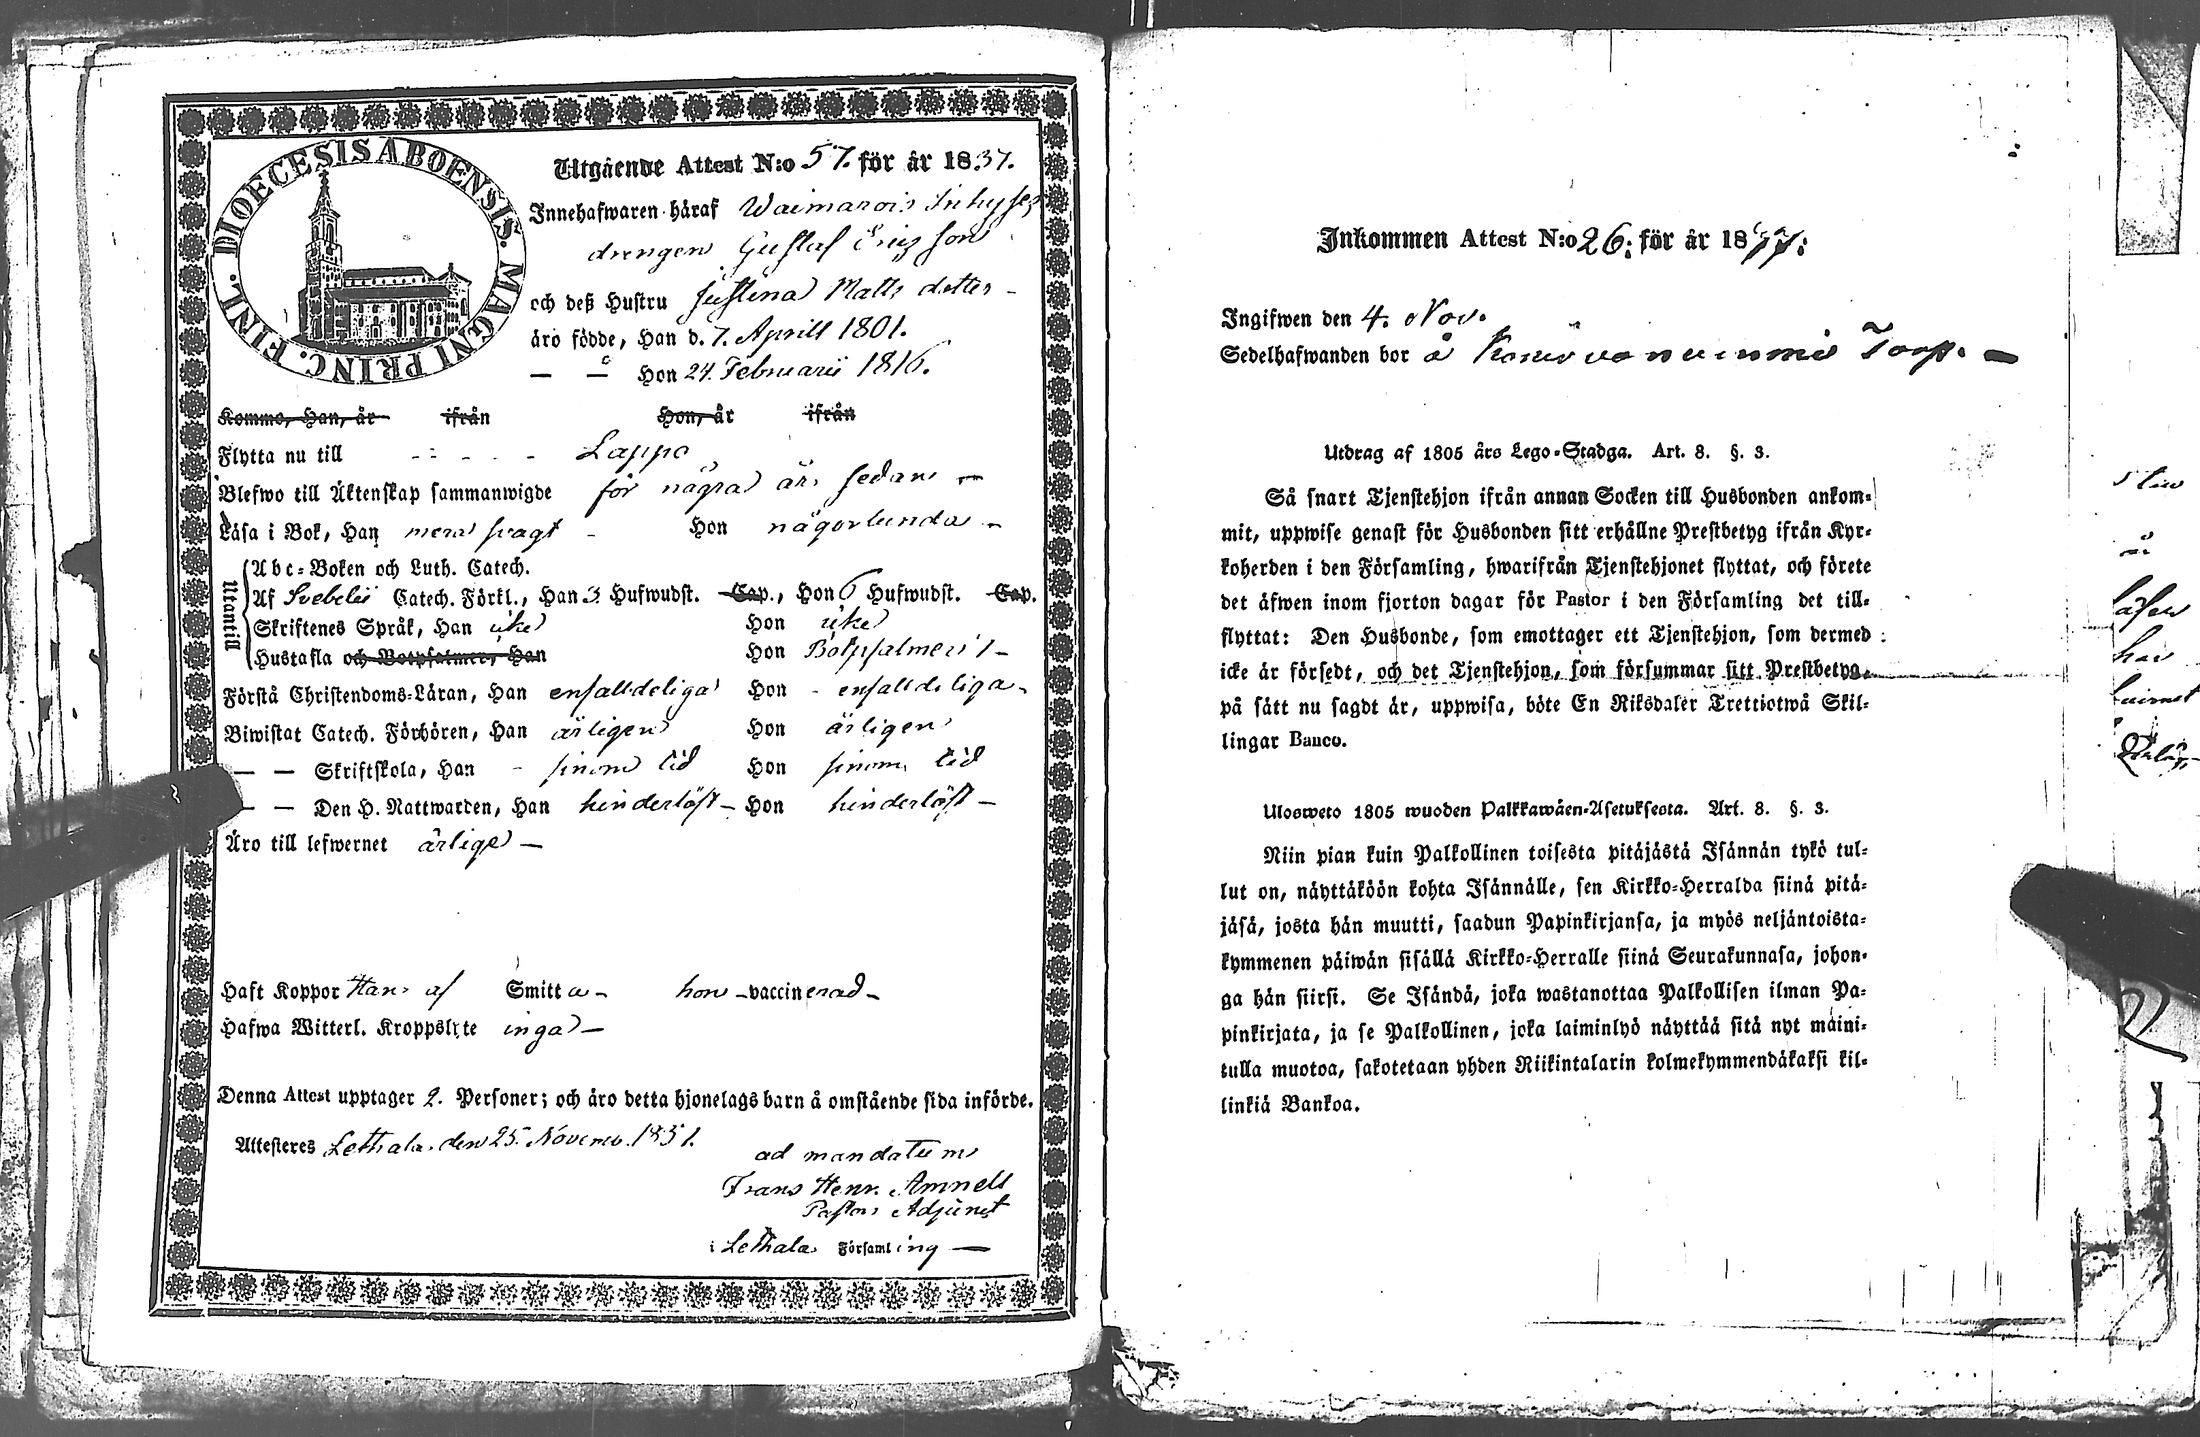 DIOECESIS ABOENSIS. MAGNI PRINC. FINL.
Utgående Attest N:o 57. för år 1837.
Innehafwaren häraf Waimarois
drengen Gustaf Ericsson
och deß Hustru Justina Matts dotter -
äro födde, Han d. 7. Aprill 1801.
— — Hon 24. Februarii 1816.
Komme, Han, år ifrån Hon, år ifrån
Flytta nu till - - - - - Lappo
Blefwo till Äktenskap sammanwigde för några år sedan —
Läsa i Bok, Han mera svagt - Hon någorlunda -
Utantill
Abc-Boken och Luth. Catech.
Af Svebelii Catech. Förkl., Han 3 Hufwudst. Cap., Hon 6 Hufwudst. Cap.
Skriftenes Språk, Han icke Hon icke
Hustafla och Botpsalmer, Han Hon Botpsalmer
Förstå Christendoms-Läran, Han enfalldeliga Hon - enfalldeliga -
Biwistat Catech. Förhören, Han årligen Hon årligen
— — Skriftskola, Han - sinom tid Hon sinom tid
— — Den H. Nattwarden, Han hinderlöst - Hon hinderlöst -
Äro till lefwernet ärliga —
Haft Koppor Han af Smitta - hon - vaccinerad -
Hafwa Witterl. Kroppslyte inga —
Denna Attest upptager 2. Personer; och äro detta hjonelags barn å omstående sida införde.
Attesteres Lethala den 25. Novemb.
ad mandatum
Frans Henr. Amnell
Pastors Adjunct
i Lethala Församling —
Inkommen Attest N:o 26: för år 18
Ingifwen den 4. Nov.
Sedelhafwanden bor å Torp. —
Utdrag af 1805 års Lego-Stadga. Art. 8. §. 3.
Så snart Tjenstehjon ifrån annan Socken till Husbonden ankom-
mit, uppwise genast för Husbonden sitt erhållne Prestbetyg ifrån Kyr-
koherden i den Församling, hwarifrån Tjenstehjonet flyttat, och förete
det äfwen inom fjorton dagar för Pastor i den Församling det till-
flyttat: Den Husbonde, som emottager ett Tjenstehjon, som dermed
icke är försedt, och det Tjenstehjon, som försummar sitt Prestbetyg,
på sätt nu sagdt är, uppwisa, böte En Riksdaler Trettiotwå Skil-
lingar Banco.
Ulosweto 1805 wuoden Palkkawäen-Asetuksesta. Art. 8. §. 3.
Niin pian kuin Palkollinen toisesta pitäjästä Isännän tykö tul-
lut on, näyttäköön kohta Isännälle, sen Kirkko-Herralda siinä pitä-
jäsä, josta hän muutti, saadun Papinkirjansa, ja myös neljäntoista-
kymmenen päiwän sisällä Kirkko-Herralle siinä Seurakunnasa, johon-
ga hän siirsi. Se Isändä, joka wastanottaa Palkollisen ilman Pa-
pinkirjata, ja se Palkollinen, joka laiminlyö näyttää sitä nyt maini-
tulla muotoa, sakotetaan yhden Riikintalarin kolmekymmendäkaksi kil-
linkiä Bankoa.